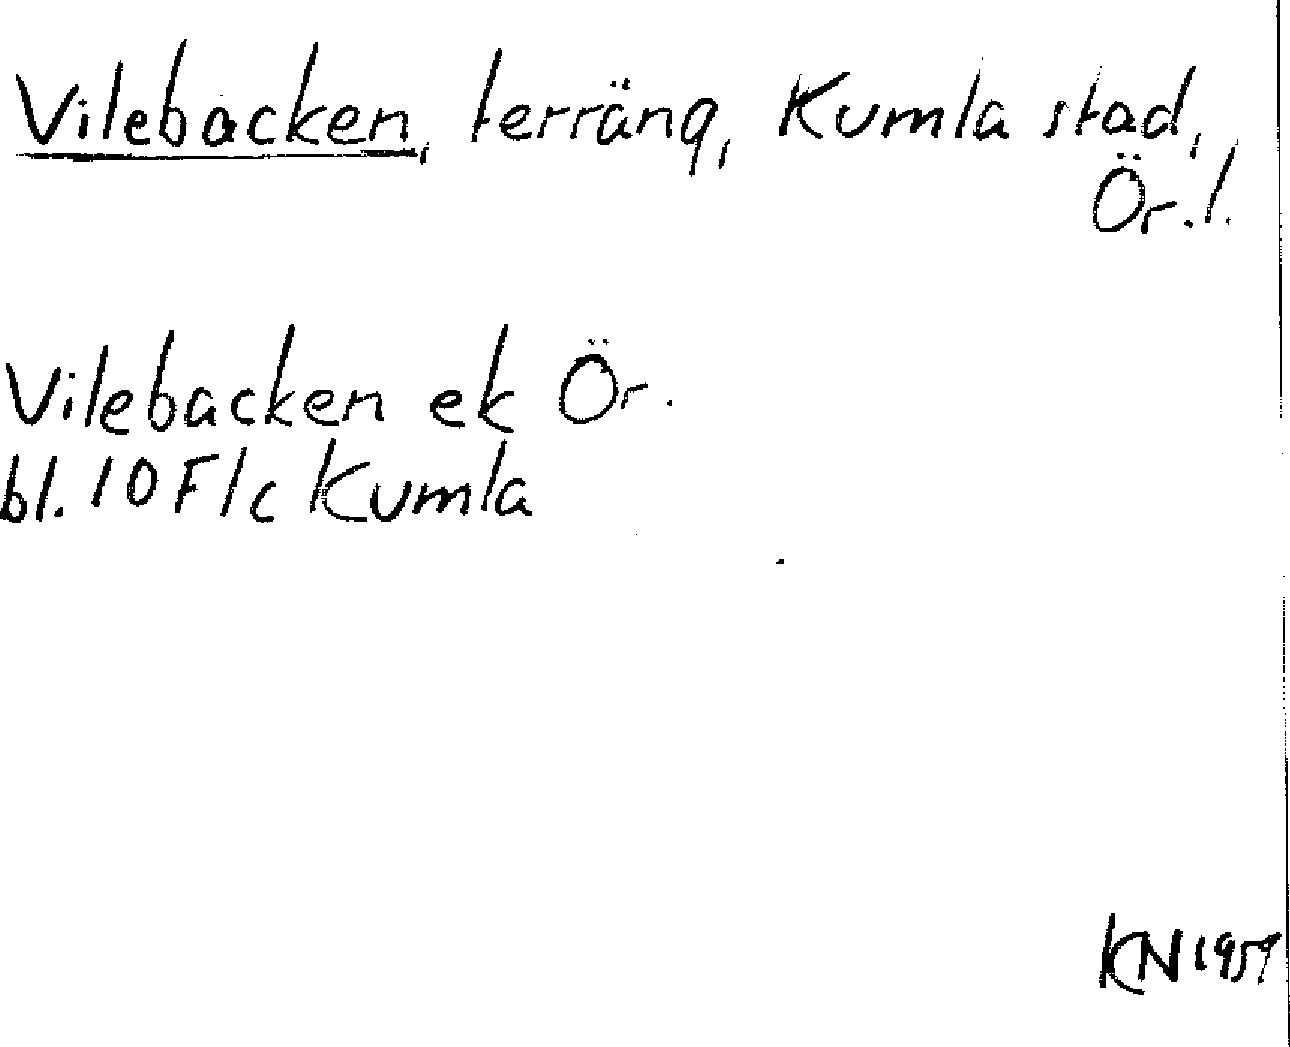 Vilebacken, terräng, Kumla stad,
Ör. l.
Vilebacken ek Ör.
bl. 10 F/c Kumla
KN 1959